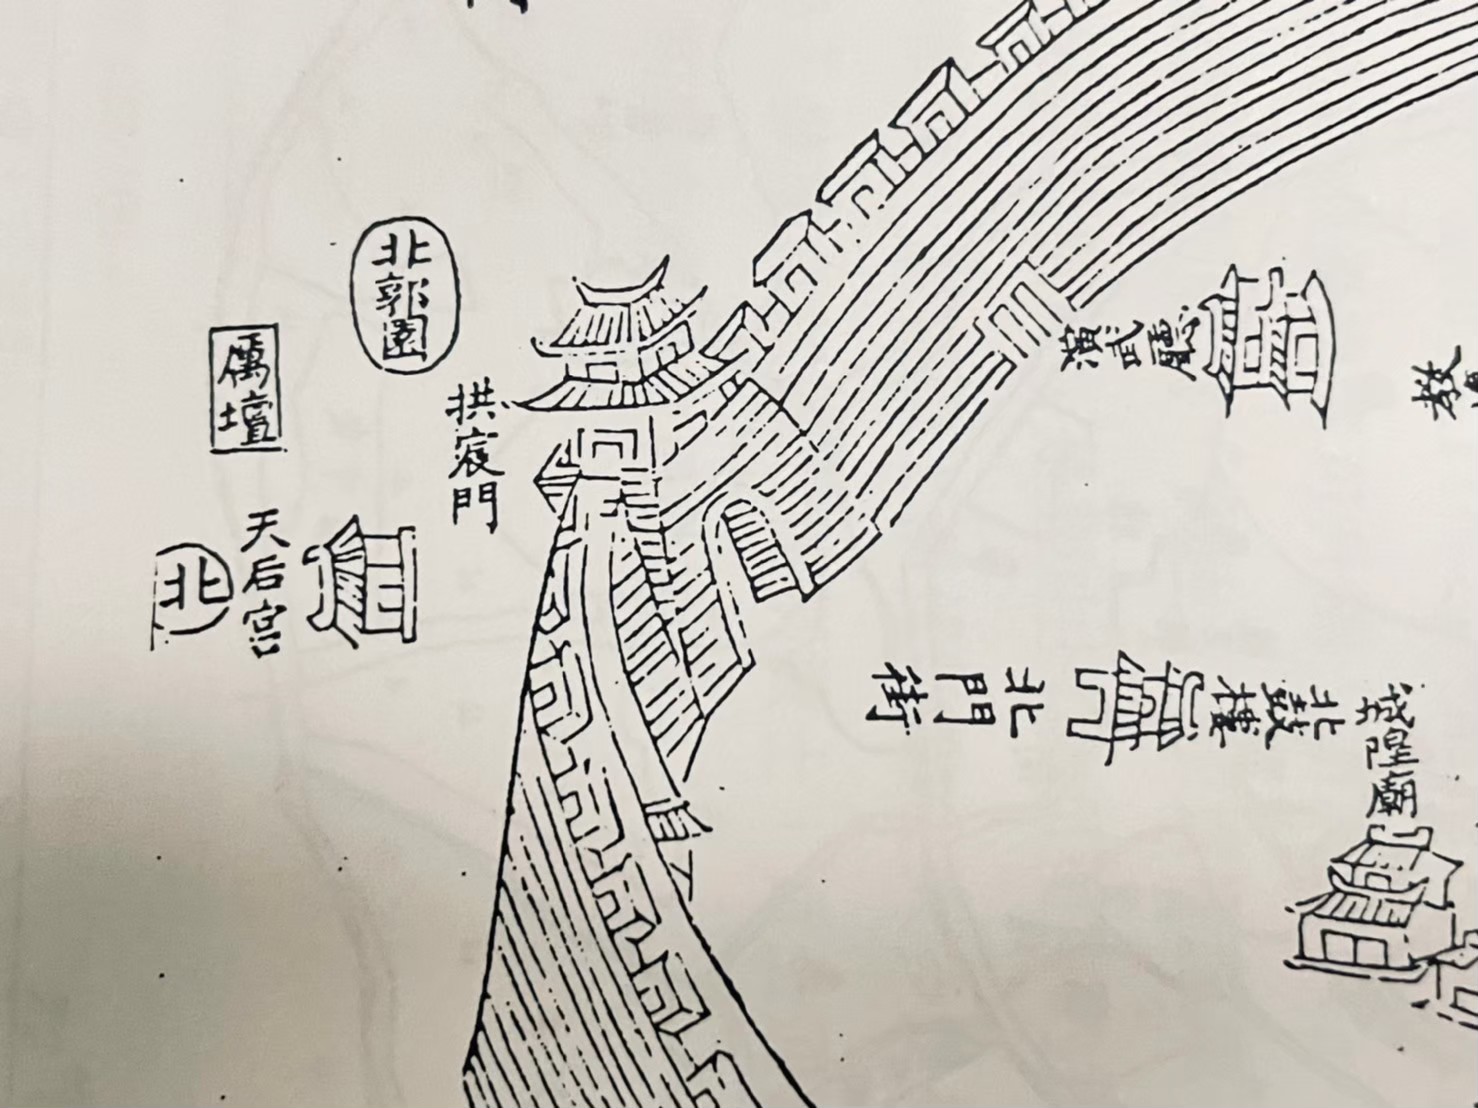 北郭園
厲壇
拱宸門
天后宮
北
演武廳
北門街
北鼓樓
城隍廟
教